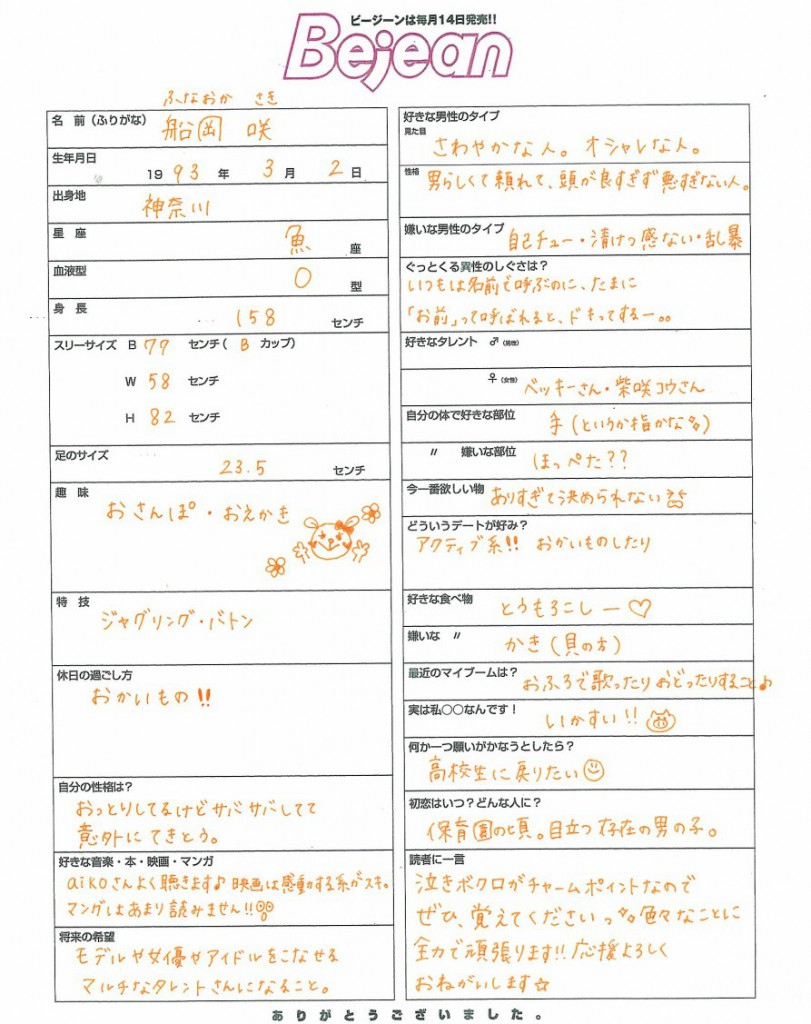 ビージーンは毎月14日発売!!
Bejean
ふなおか さき
名 前(ふりがな) 船岡 咲
生年月日
1993年 3月 2日
出身地 神奈川
星 座 魚座
血液型 O型
身 長 158センチ
スリーサイズ B 77センチ( Bカップ)
W 58センチ
H 82センチ
足のサイズ
23.5センチ
趣 味
おさんぽ・おえかき
特 技
ジャグリング・バトン
休日の過ごし方
おかいもの!!
自分の性格は?
おっとりしてるけどサバサバしてて
意外にてきとう。
好きな音楽・本・映画・マンガ
aikoさんよく聴きます♪映画は感動する系がスキ。
マンガはあまり読みません!!
将来の希望
モデルや女優やアイドルをこなせる
マルチなタレントさんになること。
好きな男性のタイプ
見た目
さわやかな人。オシャレな人。
性格 男らしくて頼れて、頭が良すぎず悪すぎない人。
嫌いな男性のタイプ 自己チュー・清けつ感ない・乱暴
ぐっとくる異性のしぐさは?
いつもは名前で呼ぶのに、たまに
「お前」って呼ばれると、ドキってするー。。
好きなタレント ♂(男性)
♀(女性) ベッキーさん・柴咲コウさん
自分の体で好きな部位 手(というか指かな)
〃 嫌いな部位 ほっぺた??
今一番欲しい物 ありすぎて決められない
どういうデートが好み?
アクティブ系!! おかいものしたり
好きな食べ物 とうもろこしー♡
嫌いな 〃 かき(貝の方)
最近のマイブームは? おふろで歌ったりおどったりすること♪
実は私〇〇なんです! いかすい!!
何か一つ願いがかなうとしたら?
高校生に戻りたい
初恋はいつ?どんな人に?
保育園の頃。目立つ存在の男の子。
読者に一言
泣きボクロがチャームポイントなので
ぜひ、覚えてくださいっ 色々なことに
全力で頑張ります!!応援よろしく
おねがいします☆
ありがとうございました。